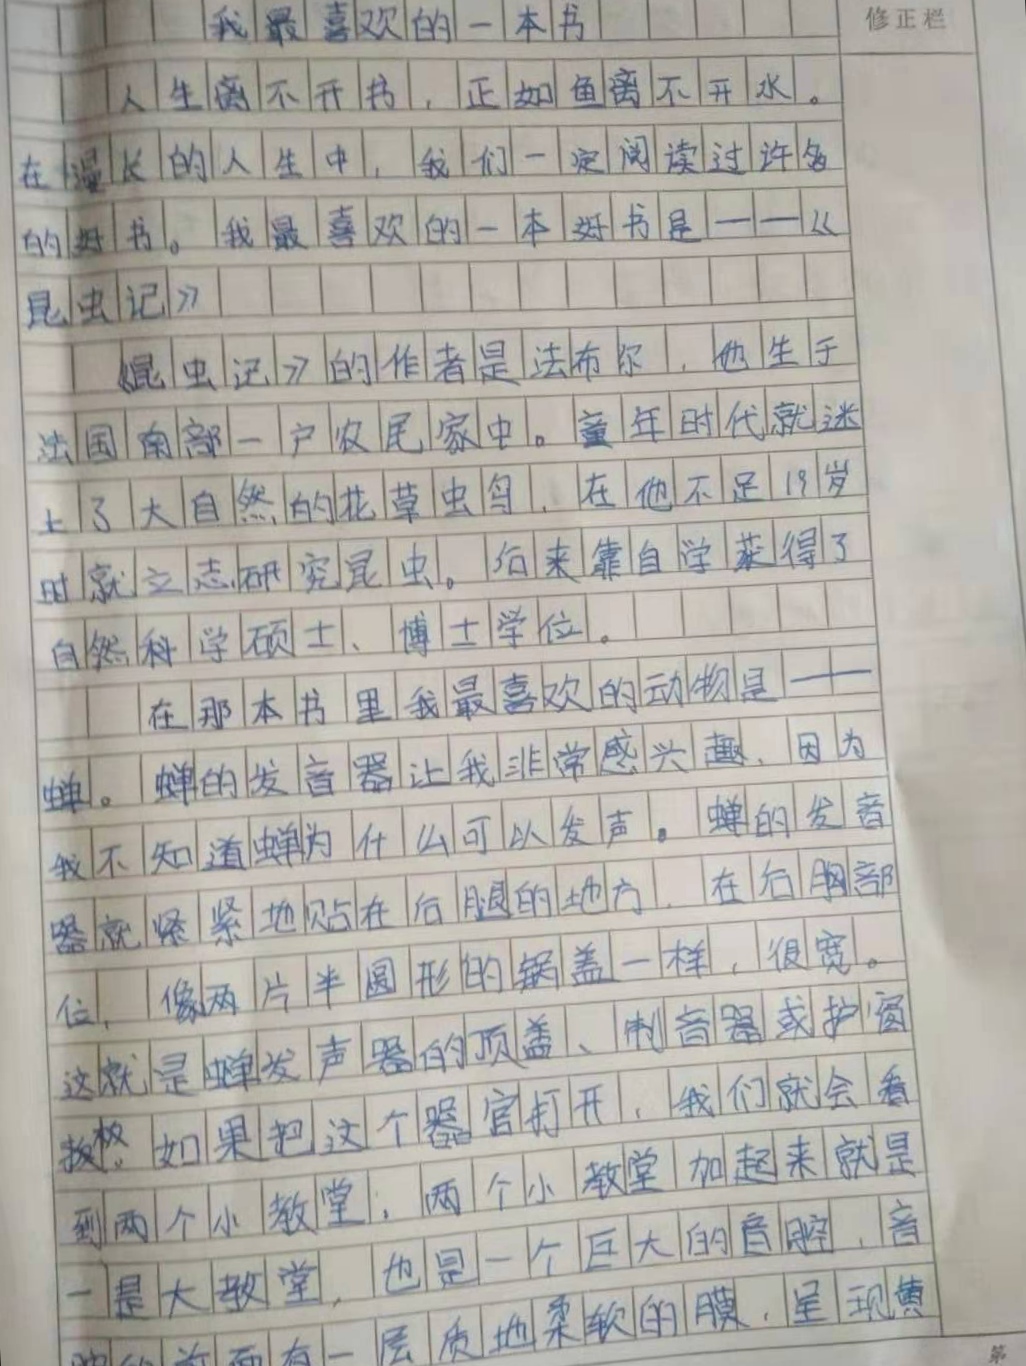 我最喜欢的一本书
修正栏
人生离不开书，正如鱼离不开水。
在漫长的人生中，我们一定阅读过许多
的好书。我最喜欢的一本好书是——《
昆虫记》
《昆虫记》的作者是法布尔，他生于
法国南部一户农民家中。童年时代就迷
上了大自然的花草虫鸟，在他不足19岁
时就立志研究昆虫。后来靠自学获得了
自然科学硕士、博士学位。
在那本书里我最喜欢的动物是——
蝉。蝉的发音器让我非常感兴趣，因为
我不知道蝉为什么可以发声。蝉的发音
器就紧紧地贴在后腿的地方，在后胸部
位，像两片半圆形的锅盖一样，很宽。
这就是蝉发声器的顶盖、制音器或护窗
板。如果把这个器官打开，我们就会看
到两个小教堂，两个小教堂加起来就是
一是大教堂，也是一个巨大的音腔，音
腔的前面有一层质地柔软的膜，呈现黄
第